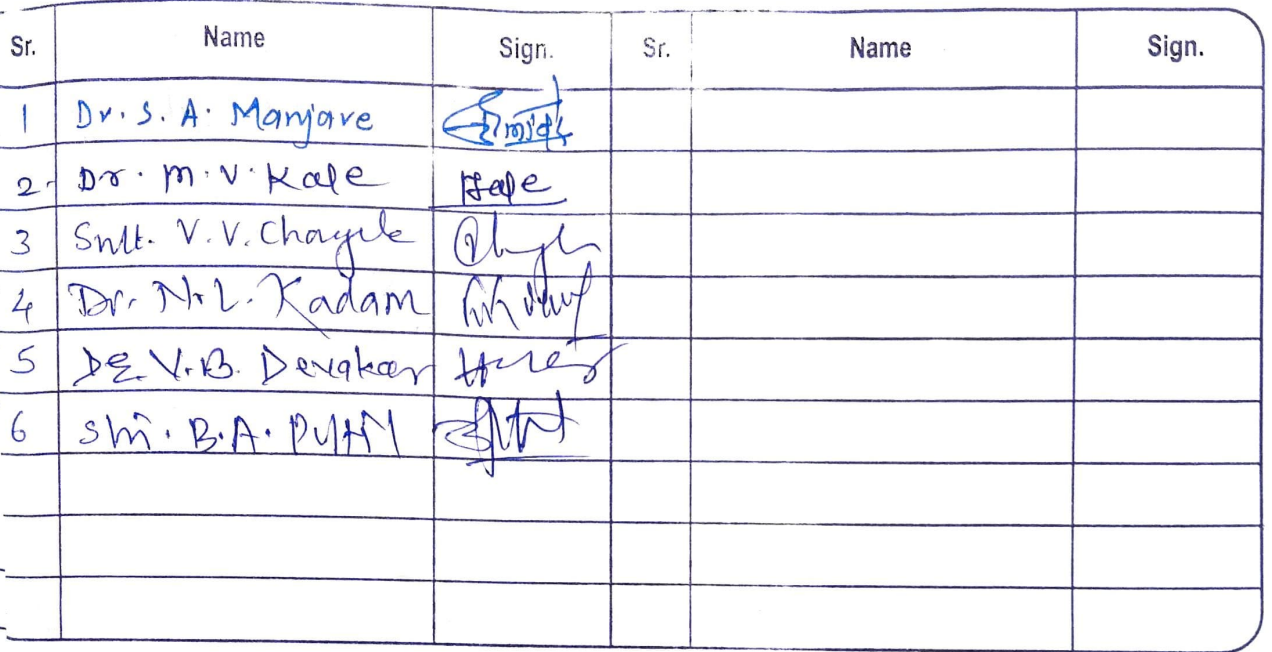 Sr. Name Sign. Sr. Name Sign.
1 Dr. S. A. Manjare
2. Dr. M. V. Kale Kale
3 Smt. V. V. Chougule
4 Dr. N. L. Kadam
5 Dr. V. B. Devakar
6 Shri. B. A.